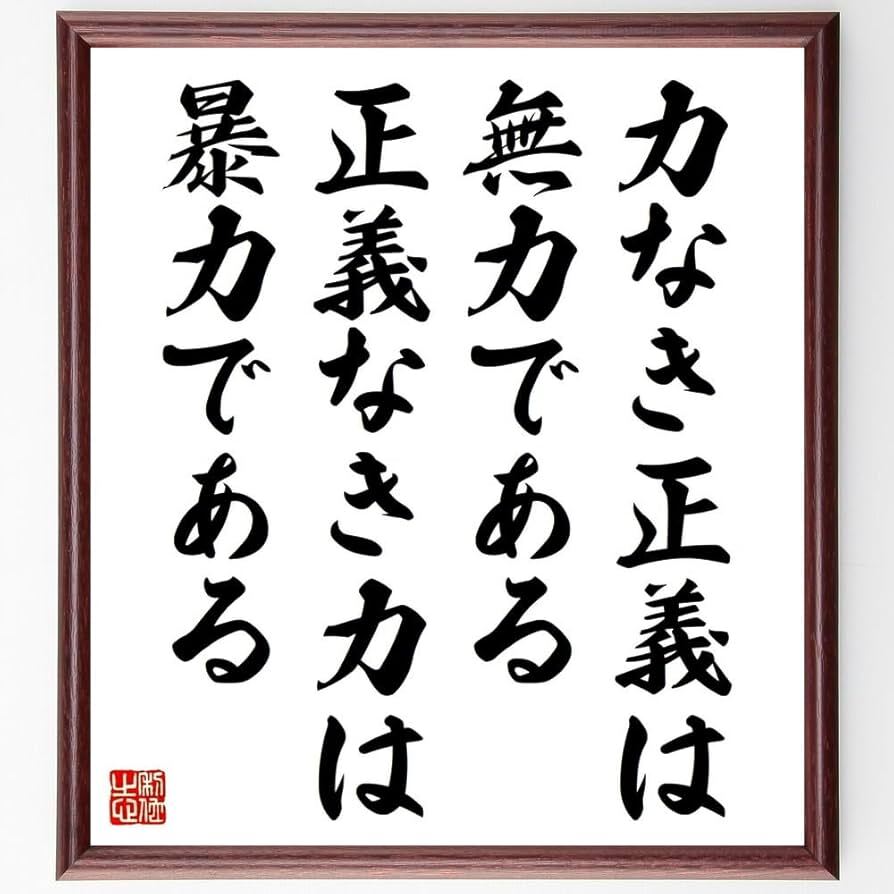 力なき正義は
無力である
正義なき力は
暴力である